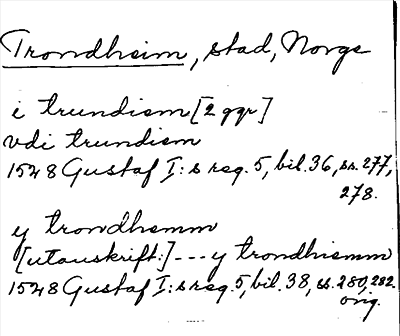 Trondheim, stad, Norge
i trundism [2 ggr]
vdi trundism
1528 Gustaf I:s reg. 5, bil. 36, ss. 277,
278.
y trondhemm
[utanskrift:] --- y trondhiemm
1528 Gustaf I:s reg. 5, bil. 38, ss. 280, 282.
orig.